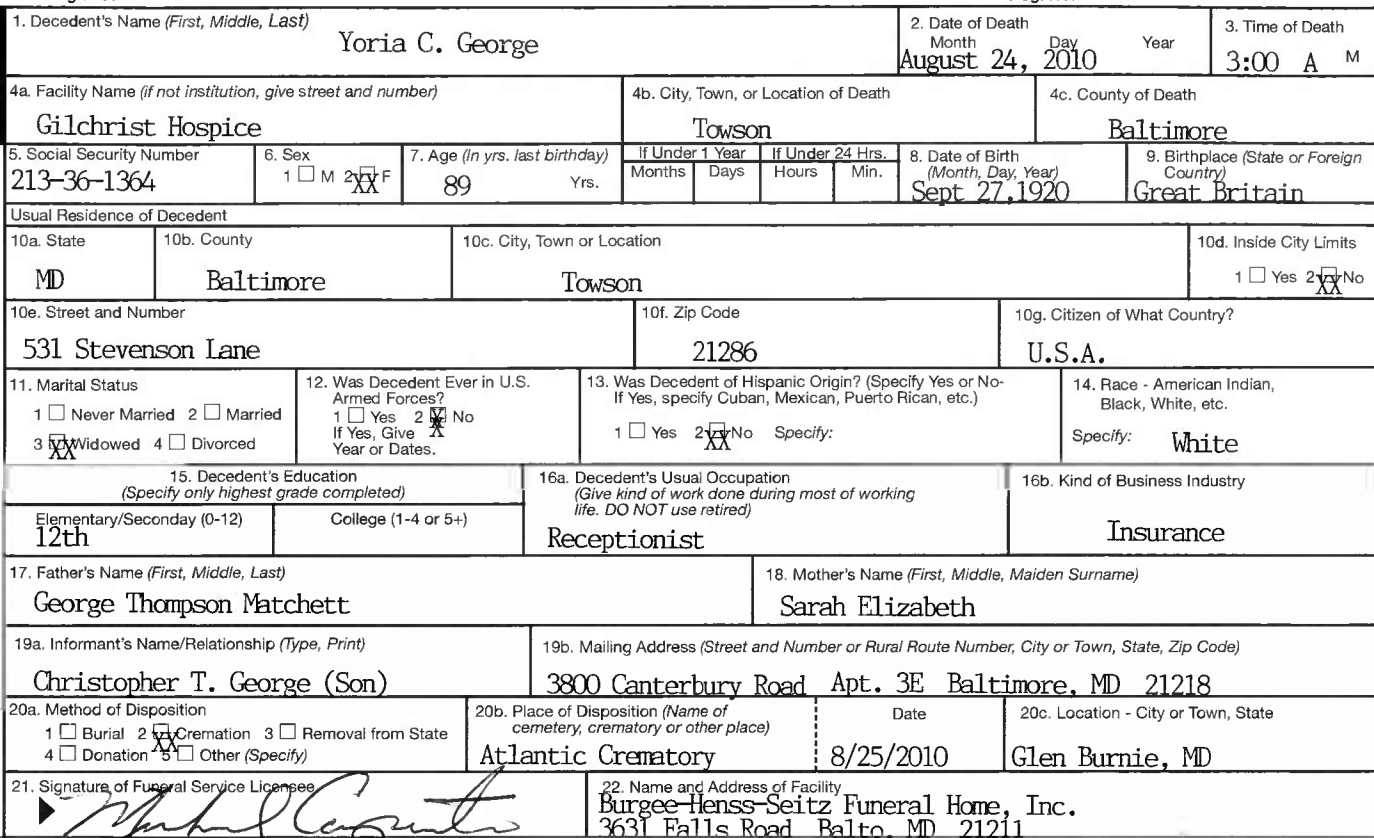 1. Decedent's Name (First, Middle, Last)
Yoria C. George
2. Date of Death
Month Day Year
August 24, 2010
3. Time of Death
3:00 A M
4a. Facility Name (if not institution, give street and number)
Gilchrist Hospice
4b. City, Town, or Location of Death
Towson
4c. County of Death
Baltimore
5. Social Security Number
213-36-1364
6. Sex
1 ☐ M 2 XX F
7. Age (In yrs. last birthday)
89 Yrs.
If Under 1 Year
Months Days
If Under 24 Hrs.
Hours Min.
8. Date of Birth
(Month, Day, Year)
Sept 27,1920
9. Birthplace (State or Foreign
Country)
Great Britain
Usual Residence of Decedent
10a. State
MD
10b. County
Baltimore
10c. City, Town or Location
Towson
10d. Inside City Limits
1 ☐ Yes 2 XX No
10e. Street and Number
531 Stevenson Lane
10f. Zip Code
21286
10g. Citizen of What Country?
U.S.A.
11. Marital Status
1 ☐ Never Married 2 ☐ Married
3 XX Widowed 4 ☐ Divorced
12. Was Decedent Ever in U.S.
Armed Forces?
1 ☐ Yes 2 X No
If Yes, Give X
Year or Dates.
13. Was Decedent of Hispanic Origin? (Specify Yes or No-
If Yes, specify Cuban, Mexican, Puerto Rican, etc.)
1 ☐ Yes 2 XX No Specify:
14. Race - American Indian,
Black, White, etc.
Specify: White
15. Decedent's Education
(Specify only highest grade completed)
Elementary/Seconday (0-12)
12th
College (1-4 or 5+)
16a. Decedent's Usual Occupation
(Give kind of work done during most of working
life. DO NOT use retired)
Receptionist
16b. Kind of Business Industry
Insurance
17. Father's Name (First, Middle, Last)
George Thompson Matchett
18. Mother's Name (First, Middle, Maiden Surname)
Sarah Elizabeth
19a. Informant's Name/Relationship (Type, Print)
Christopher T. George (Son)
19b. Mailing Address (Street and Number or Rural Route Number, City or Town, State, Zip Code)
3800 Canterbury Road Apt. 3E Baltimore, MD 21218
20a. Method of Disposition
1 ☐ Burial 2 XX Cremation 3 ☐ Removal from State
4 ☐ Donation 5 ☐ Other (Specify)
20b. Place of Disposition (Name of
cemetery, crematory or other place)
Atlantic Crematory
Date
8/25/2010
20c. Location - City or Town, State
Glen Burnie, MD
21. Signature of Funeral Service Licensee
22. Name and Address of Facility
Burgee-Henss-Seitz Funeral Home, Inc.
3631 Falls Road Balto, MD 21211